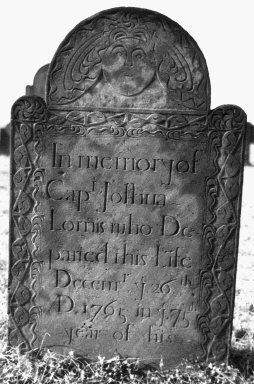 In memory of
Capt. Joshua
Lomis who De
parted this Life
Decemr. ye 26th
D. 1765 in ye 75th
year of his